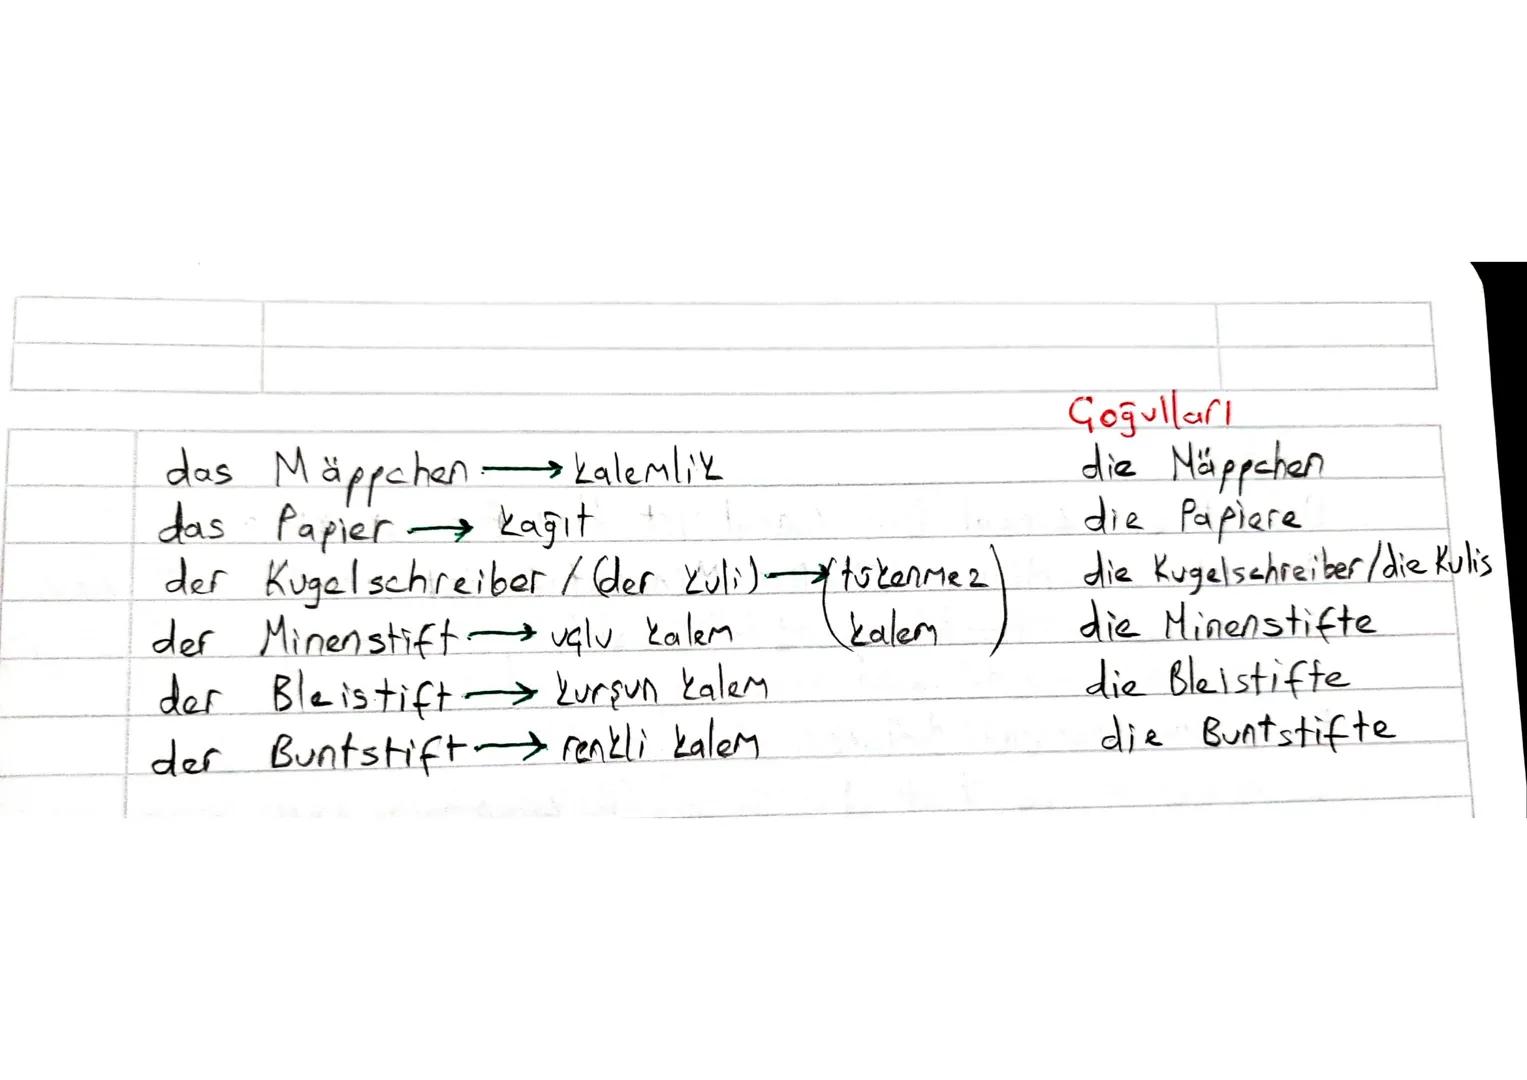 Çoğulları
das Mäppchen → kalemlik die Mäppchen
das Papier → kağıt die Papiere
der Kugelschreiber / (der Kuli) → (tükenmez die Kugelschreiber/die Kulis
der Minenstift → uçlu kalem kalem) die Minenstifte
der Bleistift → kurşun kalem die Bleistifte
der Buntstift → renkli kalem die Buntstifte